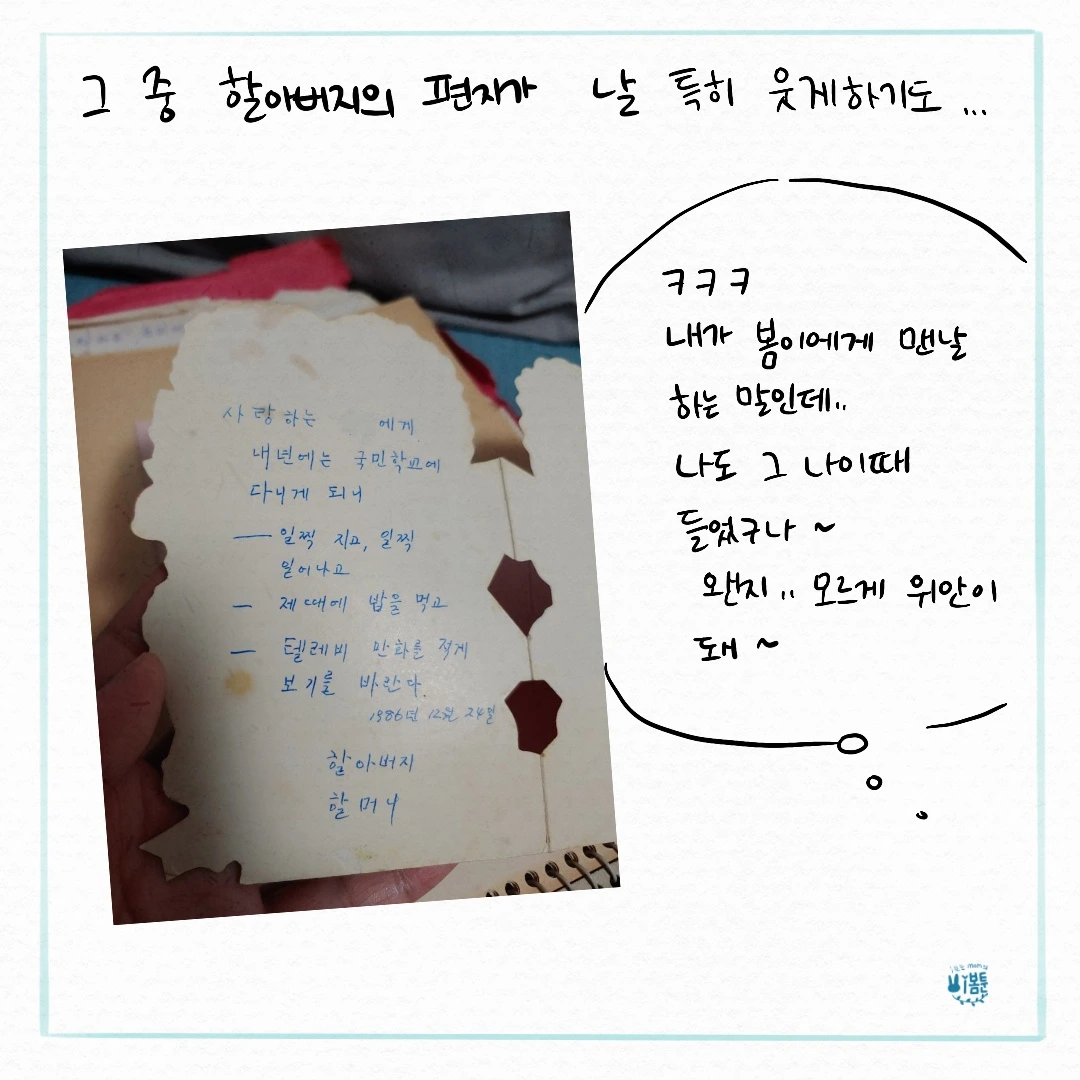 그 중 할아버지의 편지가 날 특히 웃게하기도 ...
사랑하는 에게
내년에는 국민학교에
다니게 되니
— 일찍 자고, 일찍
일어나고
— 제때에 밥을 먹고
— 텔레비 만화를 적게
보기를 바란다.
1986년 12월 24일
할아버지
할머니
ㅋㅋㅋ
내가 봄이에게 맨날
하는 말인데..
나도 그 나이때
들었구나 ~
왠지.. 모르게 위안이
돼 ~
봄툰